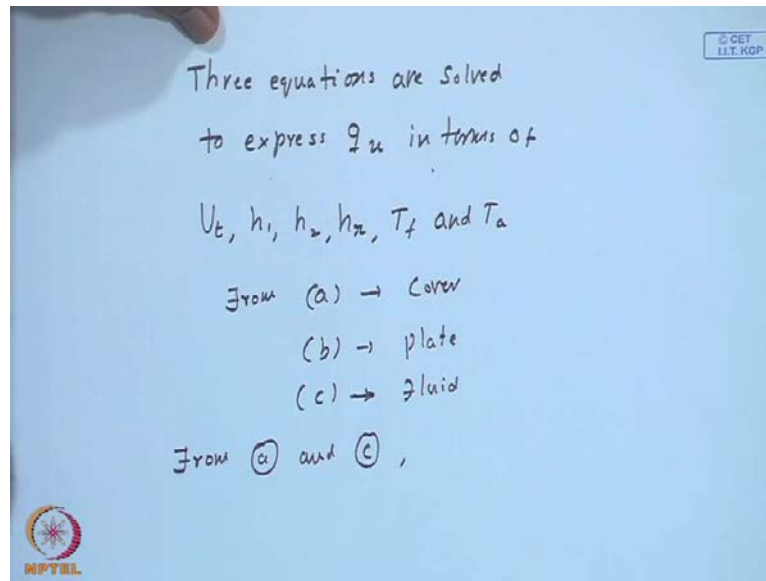 © CET
I.I.T. KGP
Three equations are solved
to express qu in terms of
Ut, h1, h2, hr, Tf and Ta
From (a) → Cover
(b) → plate
(c) → Fluid
From ⓐ and ⓒ,
NPTEL